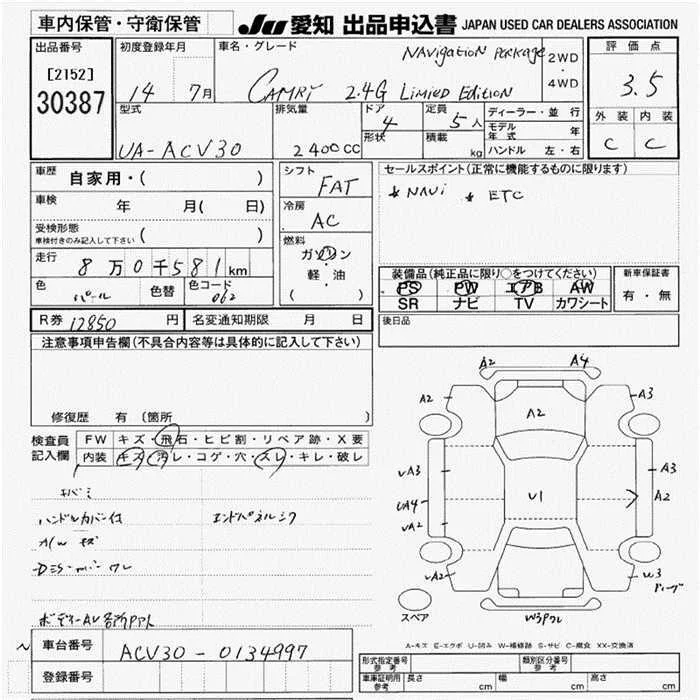 車内保管・守衛保管 JU 愛知 出品申込書 JAPAN USED CAR DEALERS ASSOCIATION
出品番号 初度登録年月 車名・グレード NAVigation package 2WD・4WD 評価点
[2152] 14 7月 CAMRY 2.4G LIMITED EDITION 3.5
30387 型式 排気量 ドア 4 定員 5人 ディーラー・並行 外装 内装
UA-ACV30 2400cc 形状 積載 kg モデル年式 年 C C
ハンドル 左・右
車歴 自家用・( ) シフト FAT セールスポイント(正常に機能するものに限ります)
車検 年 月( 日) 冷房 AC * NAVi * ETC
受検形態 ( )
車検付きのみ記入して下さい
燃料 ガソリン・軽・油 ( )
走行 8万0千581km 装備品(純正品に限り○をつけてください) 新車保証書
色 パール 色替 色コード 062 PS PW エアB AW 有・無
SR ナビ TV カワシート
R券 12850円 名変通知期限 月 日 後日品
注意事項申告欄(不具合内容等は具体的に記入して下さい)
修復歴 有 〔箇所 〕
検査員記入欄 FW キズ・飛石・ヒビ割・リペア跡・X要
内装 キズ・汚レ・コゲ・穴・スレ・キレ・破レ
ハンドルカバー付 エンドパネルシワ
A/W キズ
A2 A4
A2 A3
A2
UA3 A3
UA4 U1 A2
UA2
UA2 W3
スペア W3Pワレ
A-キズ E-エクボ U-凹み W-補修跡 S-サビ C-腐食 XX-交換済
車台番号 ACV30-0134997
登録番号
形式指定番号 参考 類別区分番号 参考
車庫証明用 参考 長さ cm 幅 cm 高さ cm